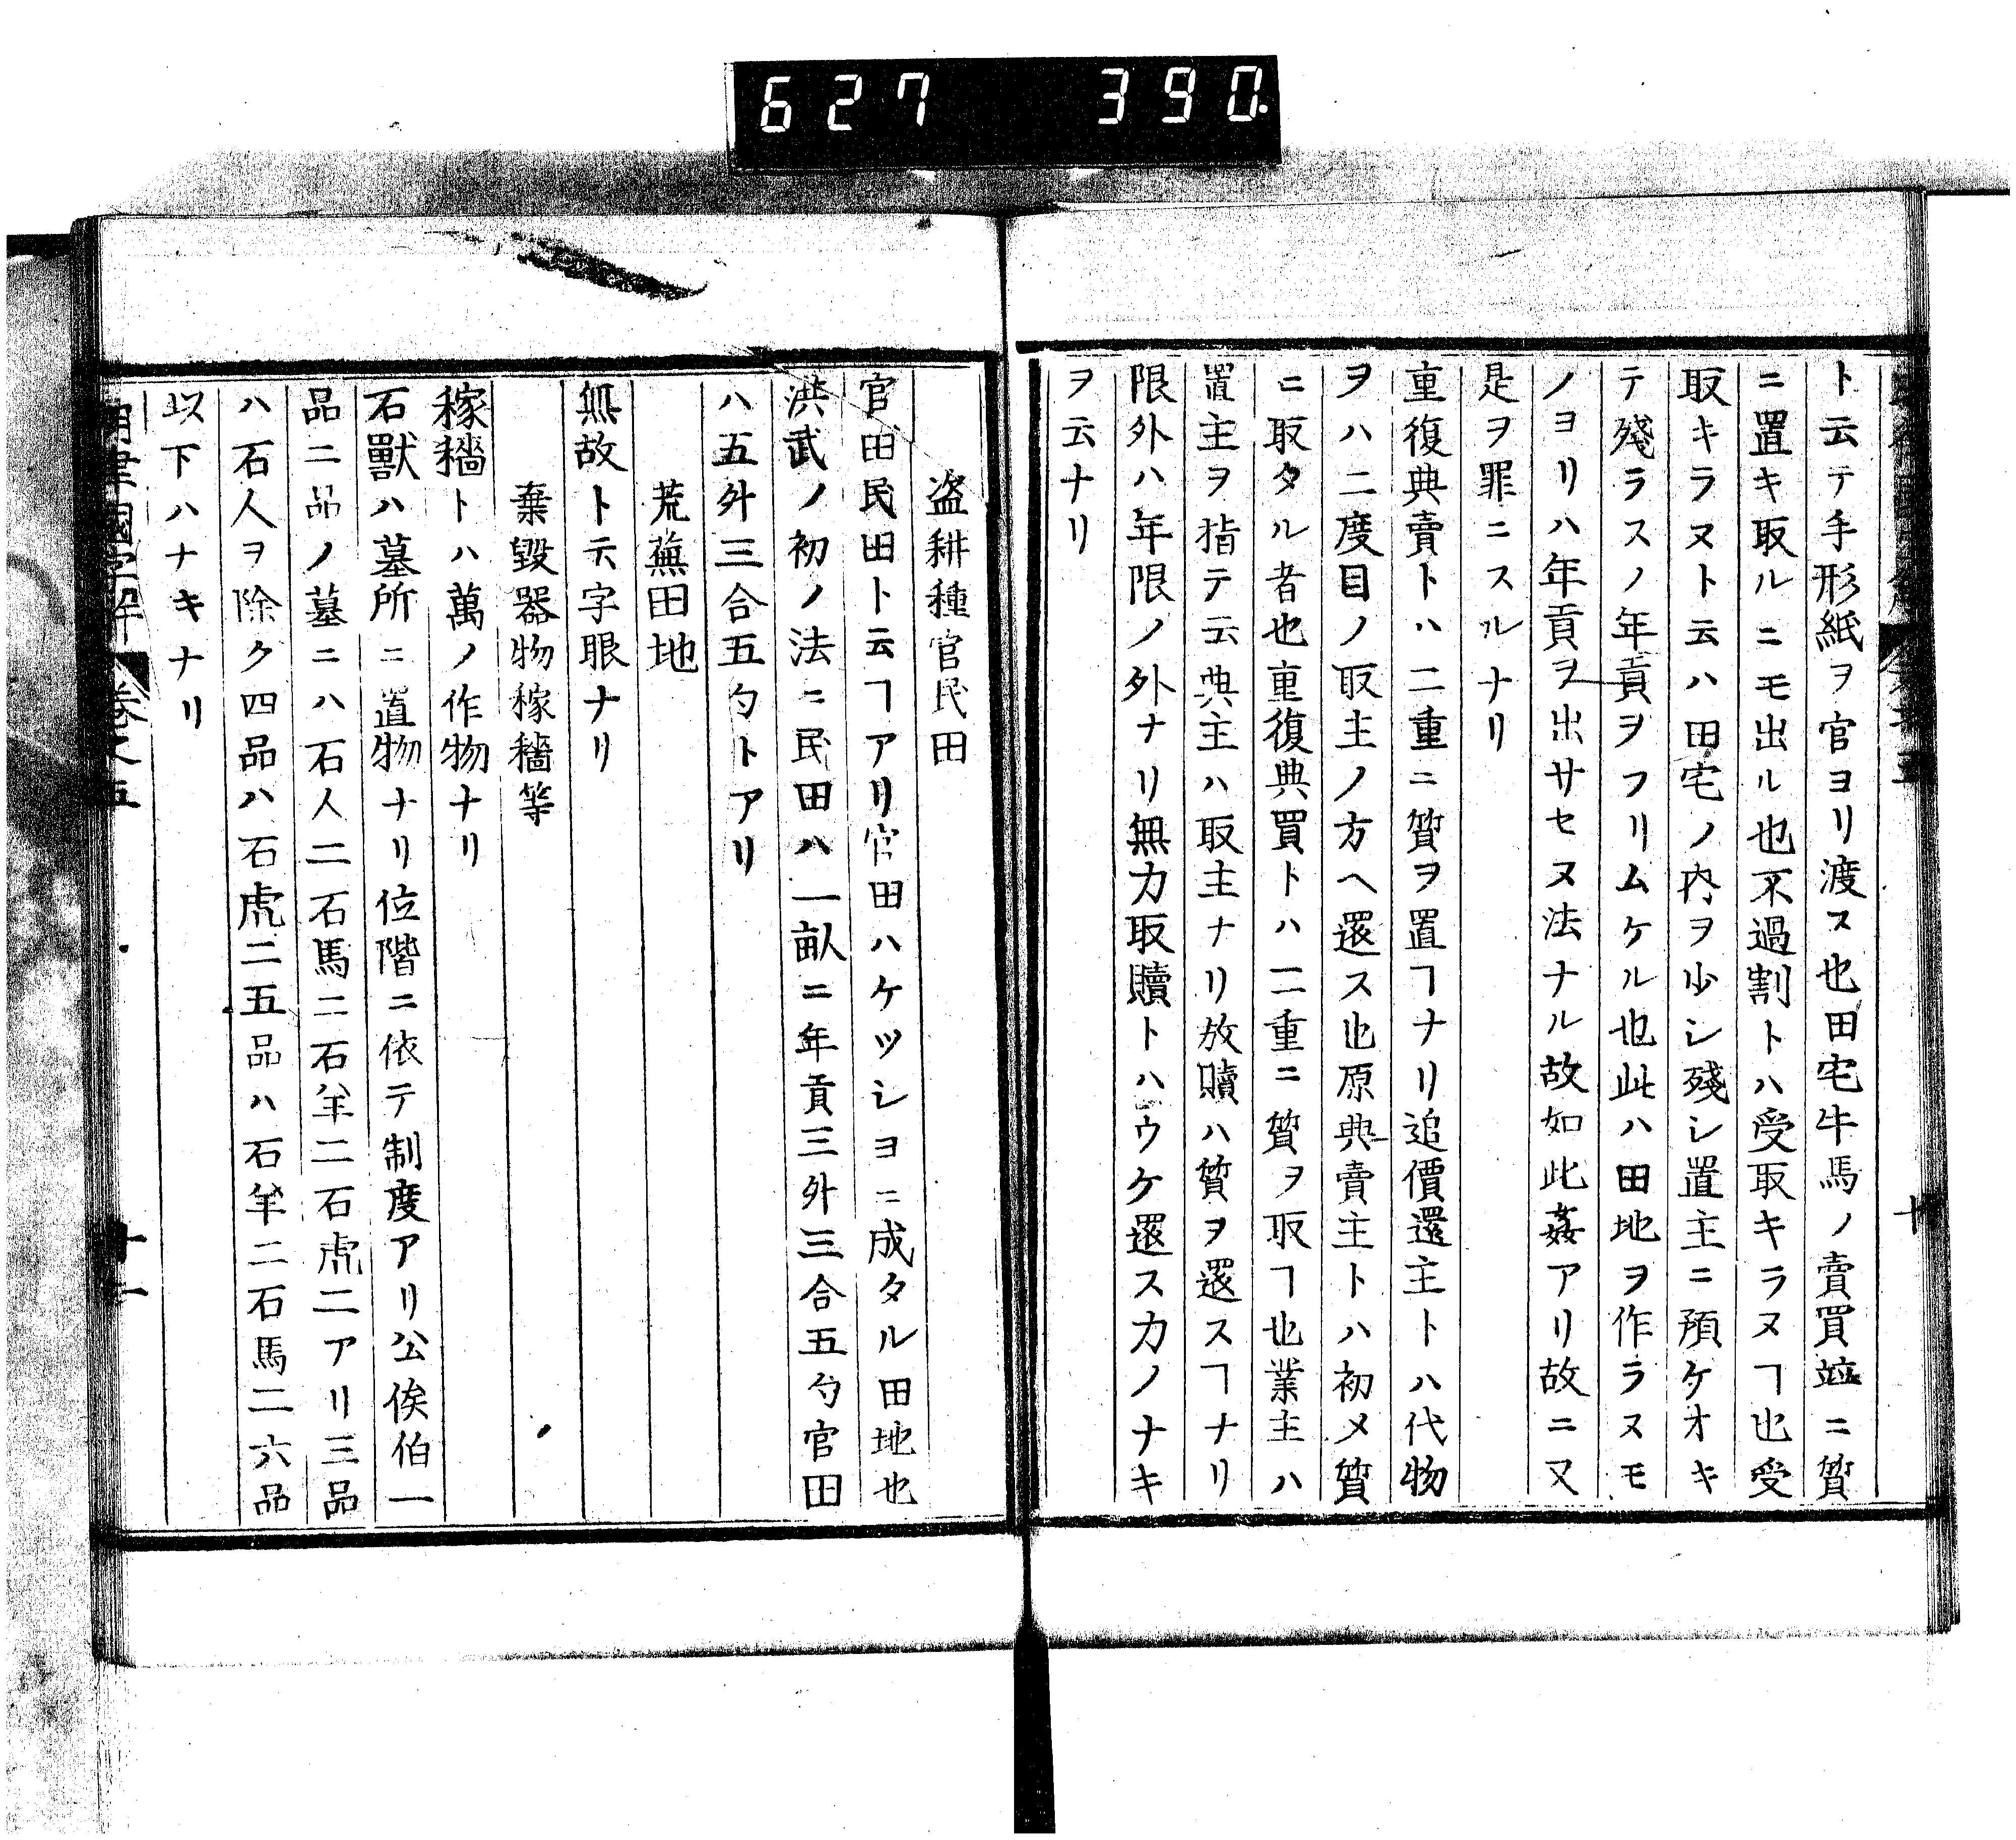 627 390
ト云テ手形紙ヲ官ヨリ渡ス也田宅牛馬ノ賣買竝ニ質
ニ置キ取ルニモ出ル也不過割トハ受取キラヌヿ也受
取キラヌト云ハ田宅ノ内ヲ少シ殘シ置主ニ預ケオキ
テ殘ラスノ年貢ヲフリムケル也此ハ田地ヲ作ラヌモ
ノヨリハ年貢ヲ出サセヌ法ナル故如此姦アリ故ニ又
是ヲ罪ニスルナリ
重復典賣トハ二重ニ質ヲ置ヿナリ追價還主トハ代物
ヲハ二度目ノ取主ノ方ヘ還ス也原典賣主トハ初メ質
ニ取タル者也重復典買トハ二重ニ質ヲ取ヿ也業主ハ
置主ヲ指テ云典主ハ取主ナリ放贖ハ質ヲ還スヿナリ
限外ハ年限ノ外ナリ無力取贖トハウケ還スカノナキ
ヲ云ナリ
盗耕種官民田
官田民田ト云ヿアリ官田ハケツシヨニ成タル田地也
洪武ノ初ノ法ニ民田ハ一畝ニ年貢三升三合五勺官田
ハ五升三合五勺トアリ
荒蕪田地
無故ト云字眼ナリ
棄毀器物稼穡等
稼穡トハ萬ノ作物ナリ
石獸ハ墓所ニ置物ナリ位階ニ依テ制度アリ公侯伯一
品二品ノ墓ニハ石人二石馬二石羊二石虎二アリ三品
ハ石人ヲ除ク四品ハ石虎二五品ハ石羊二石馬二六品
以下ハナキナリ
明律國字解 卷之五 十一